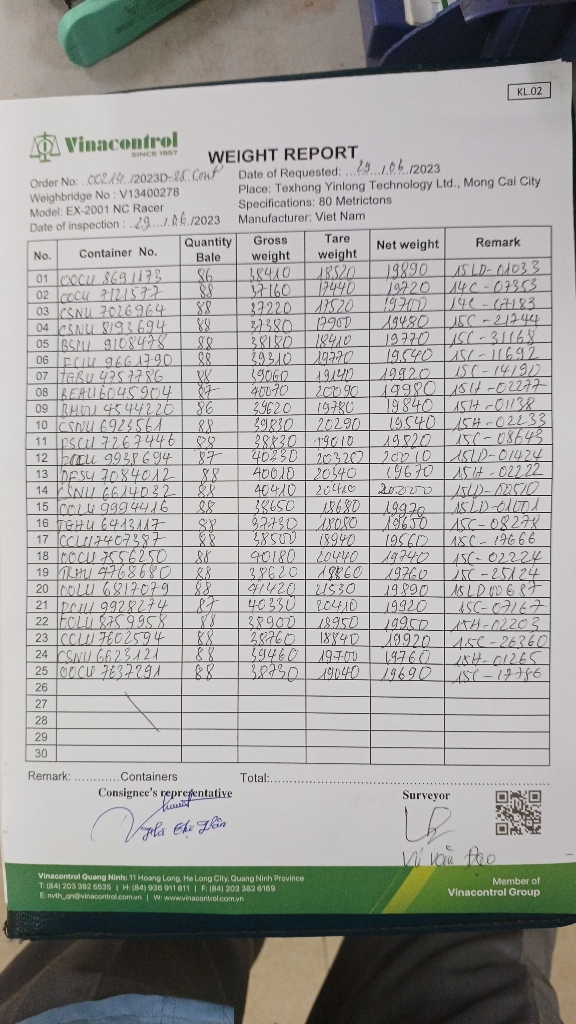 KL.02
Vinacontrol
SINCE 1957
WEIGHT REPORT
Order No: 00214 /2023D-25 Cont
Date of Requested: 29 / 06 /2023
Weighbridge No : V13400278
Place: Texhong Yinlong Technology Ltd., Mong Cai City
Model: EX-2001 NC Racer
Specifications: 80 Metrictons
Date of inspection : 29 / 06 /2023
Manufacturer: Viet Nam
No. Container No. Quantity Bale Gross weight Tare weight Net weight Remark
01 OOCU 8691173 86 38410 18520 19890 15LD-01033
02 OOCU 7121577 88 37160 17440 19720 14C-07353
03 CSNU 7026964 88 37220 17520 19700 14C-07183
04 CSNU 8193694 88 37380 17900 19480 15C-21744
05 9108478 88 38180 18410 19770 15C-31168
06 9661790 88 39310 19770 19540 15C-11692
07 4757786 88 39060 19140 19920 15C-14190
08 BEAU6045904 87 40070 20090 19980 15H-02277
09 4544220 86 39620 19780 19840 15H-01138
10 CSNU 6923561 88 39830 20290 19540 15H-02233
11 7267446 88 38830 19010 19820 15C-08643
12 9938694 87 40330 20320 20010 15LD-01424
13 7084012 88 40010 20340 19670 15H-02222
14 CSNU 6614032 88 40410 20410 20000 15LD-02510
15 CCLU 9994416 88 38650 18680 19970 15LD-01001
16 TGHU 6413117 88 37730 18080 19650 15C-08278
17 CCLU7407387 88 38500 18940 19560 15C-17666
18 OOCU 7556250 88 40180 20440 19740 15C-02224
19 4768680 88 38620 18860 19760 15C-25124
20 OOLU 6817079 88 41420 21530 19890 15LD00687
21 9928274 87 40330 20410 19920 15C-07167
22 8759958 88 38900 18950 19950 15H-02203
23 CCLU 7602594 88 38760 18840 19920 15C-26360
24 CSNU 6623121 88 39460 19700 19760 15H-01265
25 OOCU 7637291 88 38730 19040 19690 15C-17786
26
27
28
29
30
Remark: ............Containers Total:
Consignee's representative
Surveyor
Vinacontrol Quang Ninh: 11 Hoang Long, Ha Long City, Quang Ninh Province
T: (84) 203 382 5535 | H: (84) 936 911 811 | F: (84) 203 382 6169
E: nvth_qn@vinacontrol.com.vn | W: www.vinacontrol.com.vn
Member of
Vinacontrol Group